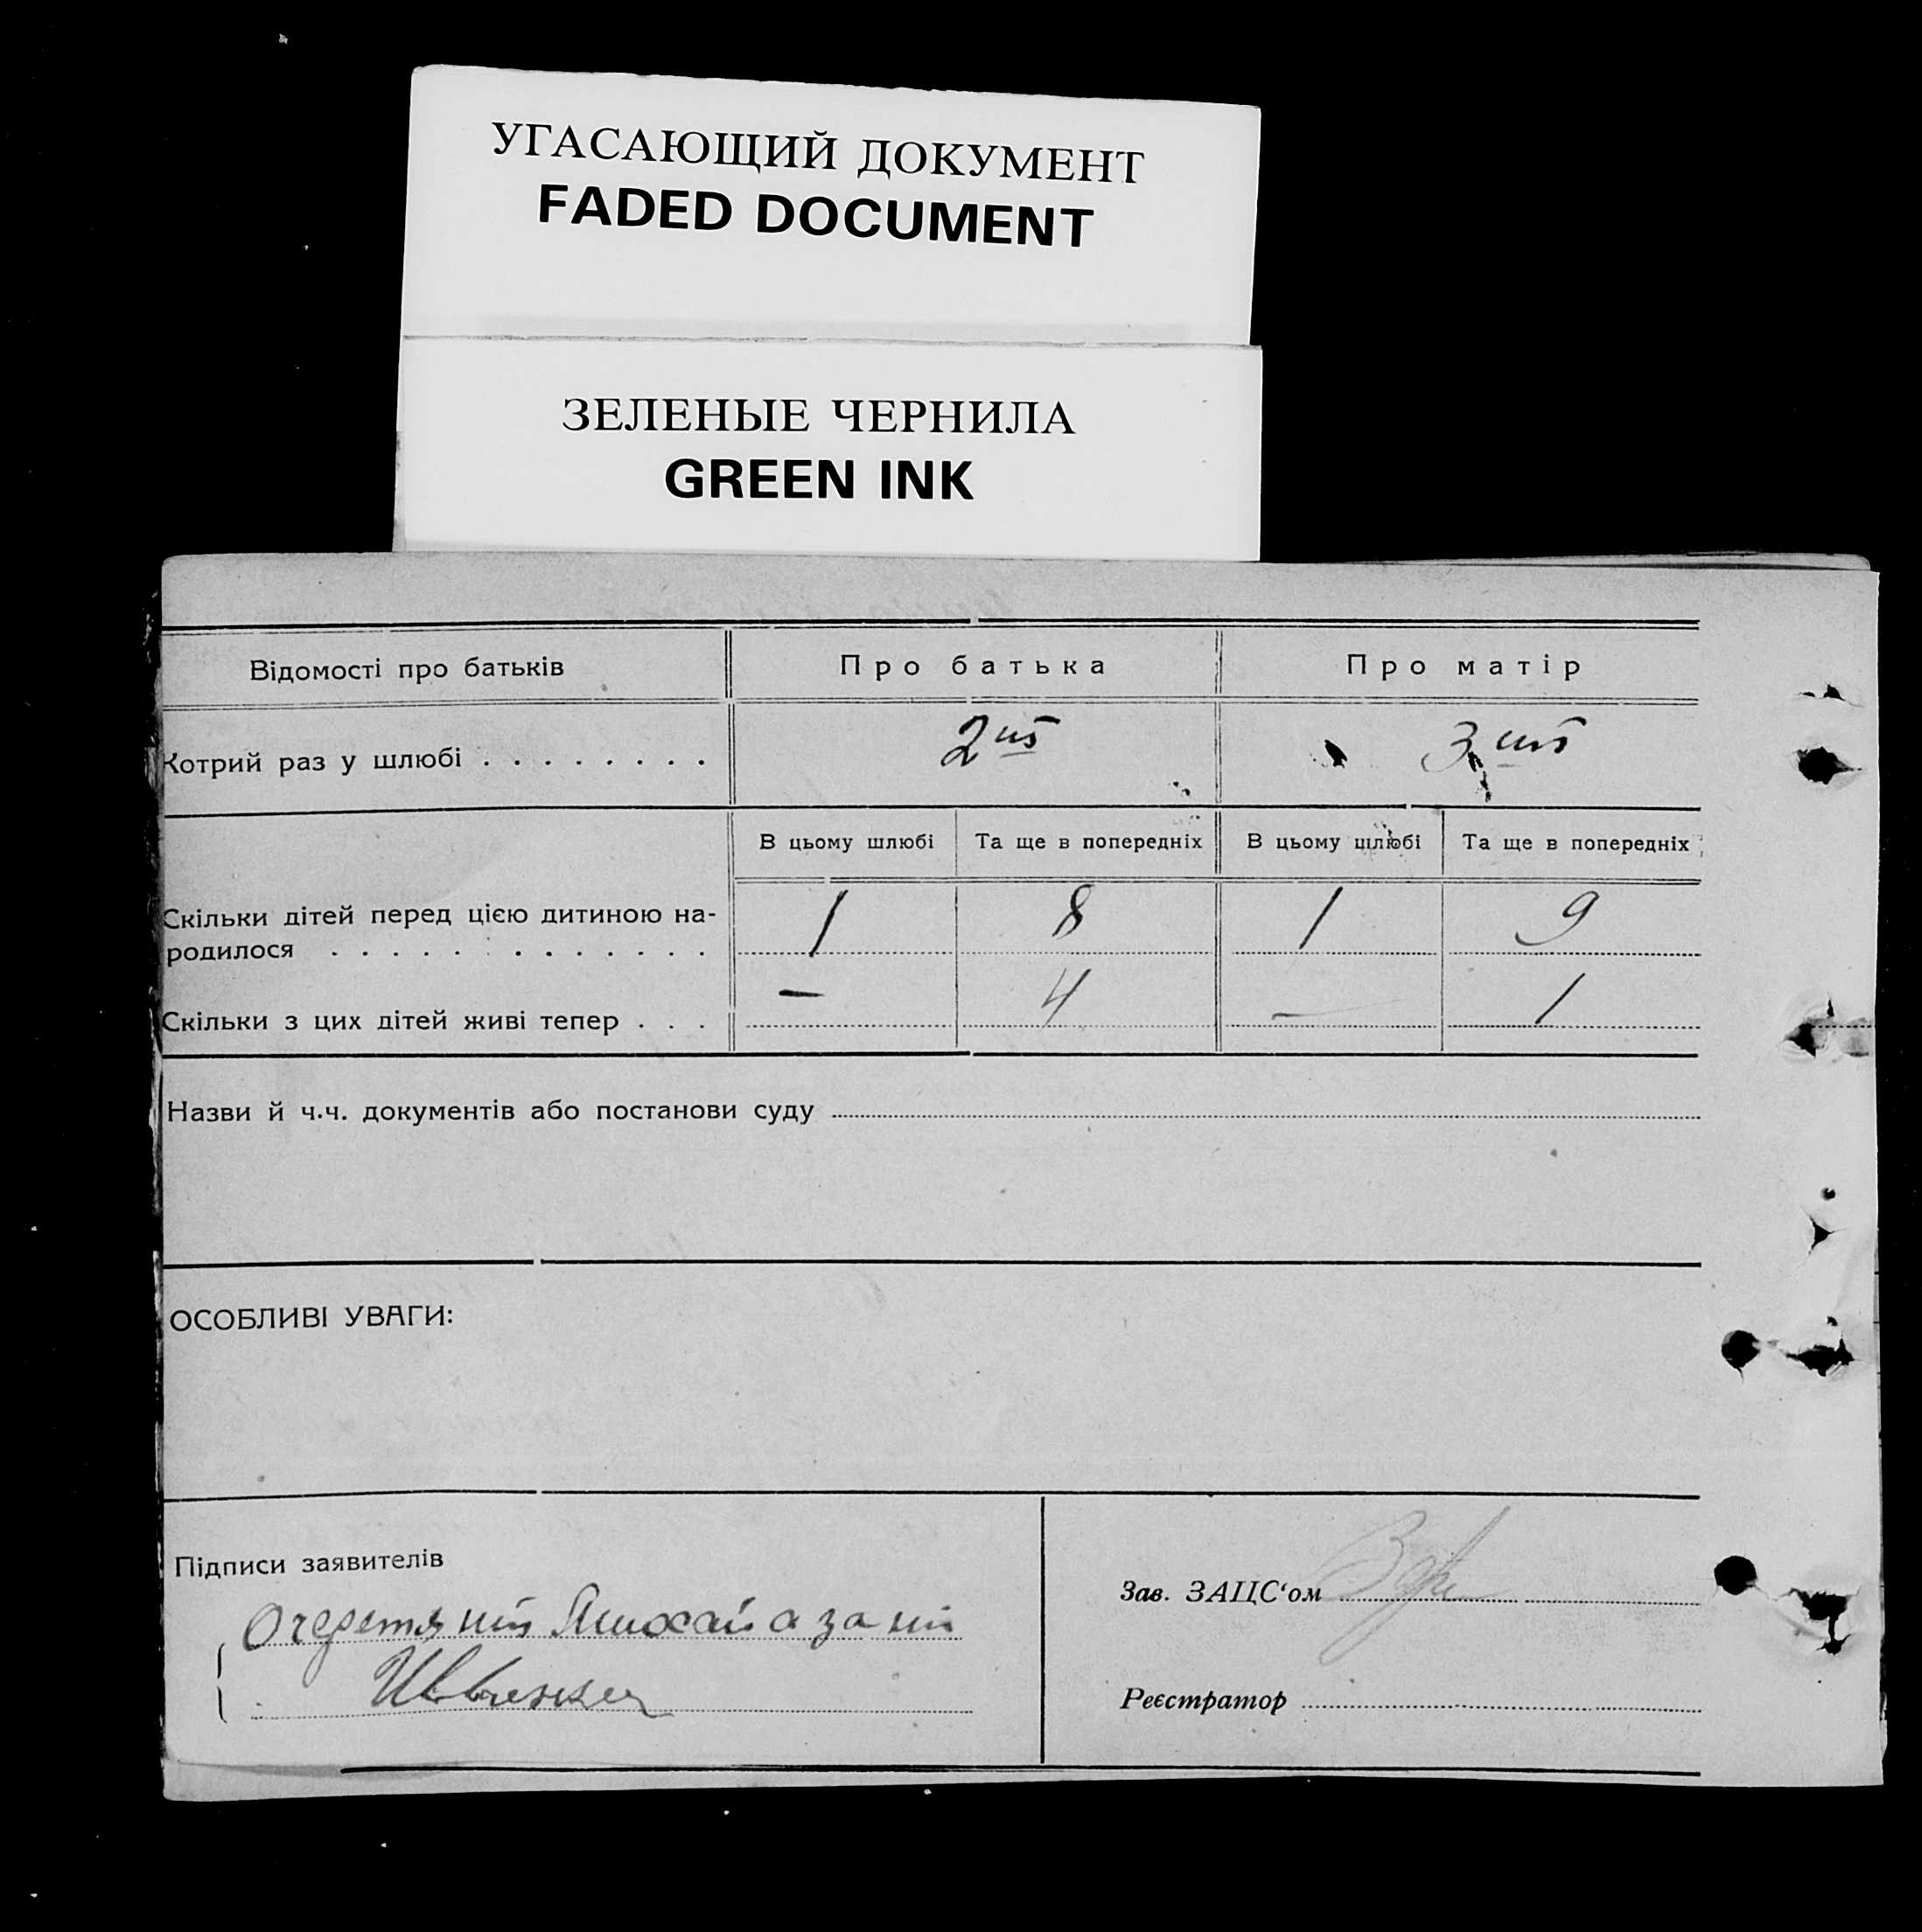 УГАСАЮЩИЙ ДОКУМЕНТ
FADED DOCUMENT
ЗЕЛЕНЫЕ ЧЕРНИЛА
GREEN INK
Відомості про батьків Про батька Про матір
Котрий раз у шлюбі . . . . . . . . 2ий 3ий
В цьому шлюбі Та ще в попередніх В цьому шлюбі Та ще в попередніх
Скільки дітей перед цією дитиною на-
родилося . . . . . . . . . . . . . 1 8 1 9
Скільки з цих дітей живі тепер . . . — 4 — 1
Назви й ч.ч. документів або постанови суду
ОСОБЛИВІ УВАГИ:
Підписи заявителів
Зав. ЗАЦС‘ом
Очеретяний а за ний
Реєстратор